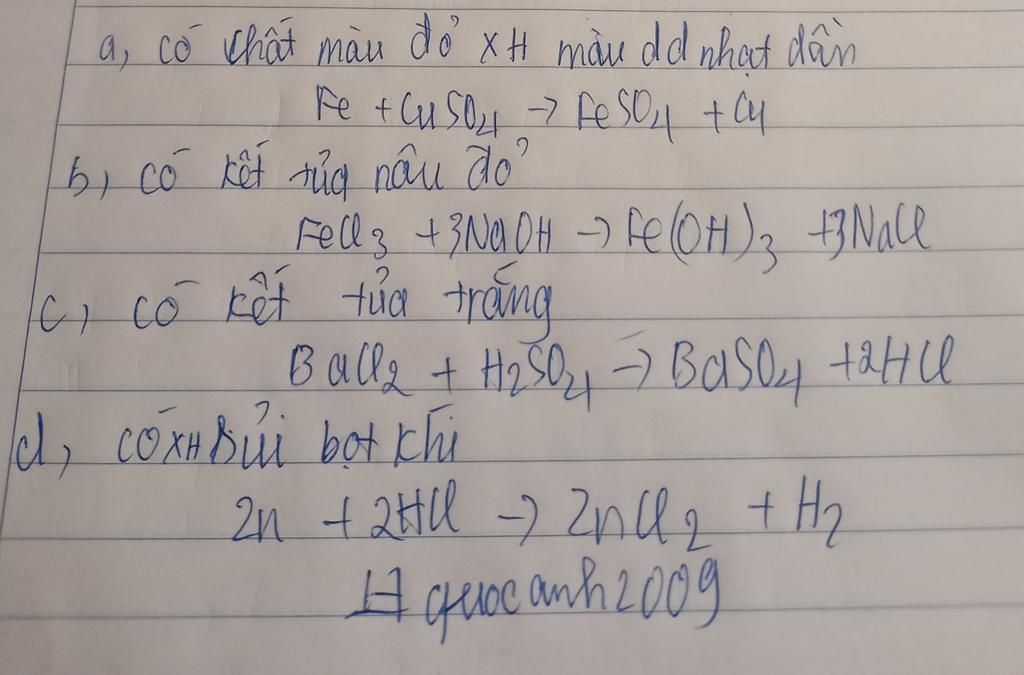 a, có chất màu đỏ XH màu dd nhạt dần
Fe + CuSO4 → FeSO4 + Cu
b, có kết tủa nâu đỏ
FeCl3 + 3NaOH → Fe(OH)3 + 3NaCl
c, có kết tủa trắng
BaCl2 + H2SO4 → BaSO4 + 2HCl
d, có XH sủi bọt khí
Zn + 2HCl → ZnCl2 + H2
# quocanh2009